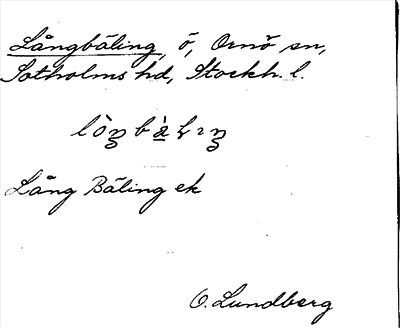 Långbåling, ö, Ornö sn,
Sotholms hd, Stockh. l.
Lång Båling ek
O. Lundberg